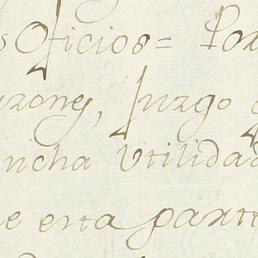 s Oficios = Por
azones, Juzgo
ncha Vtilidad
e esta parte